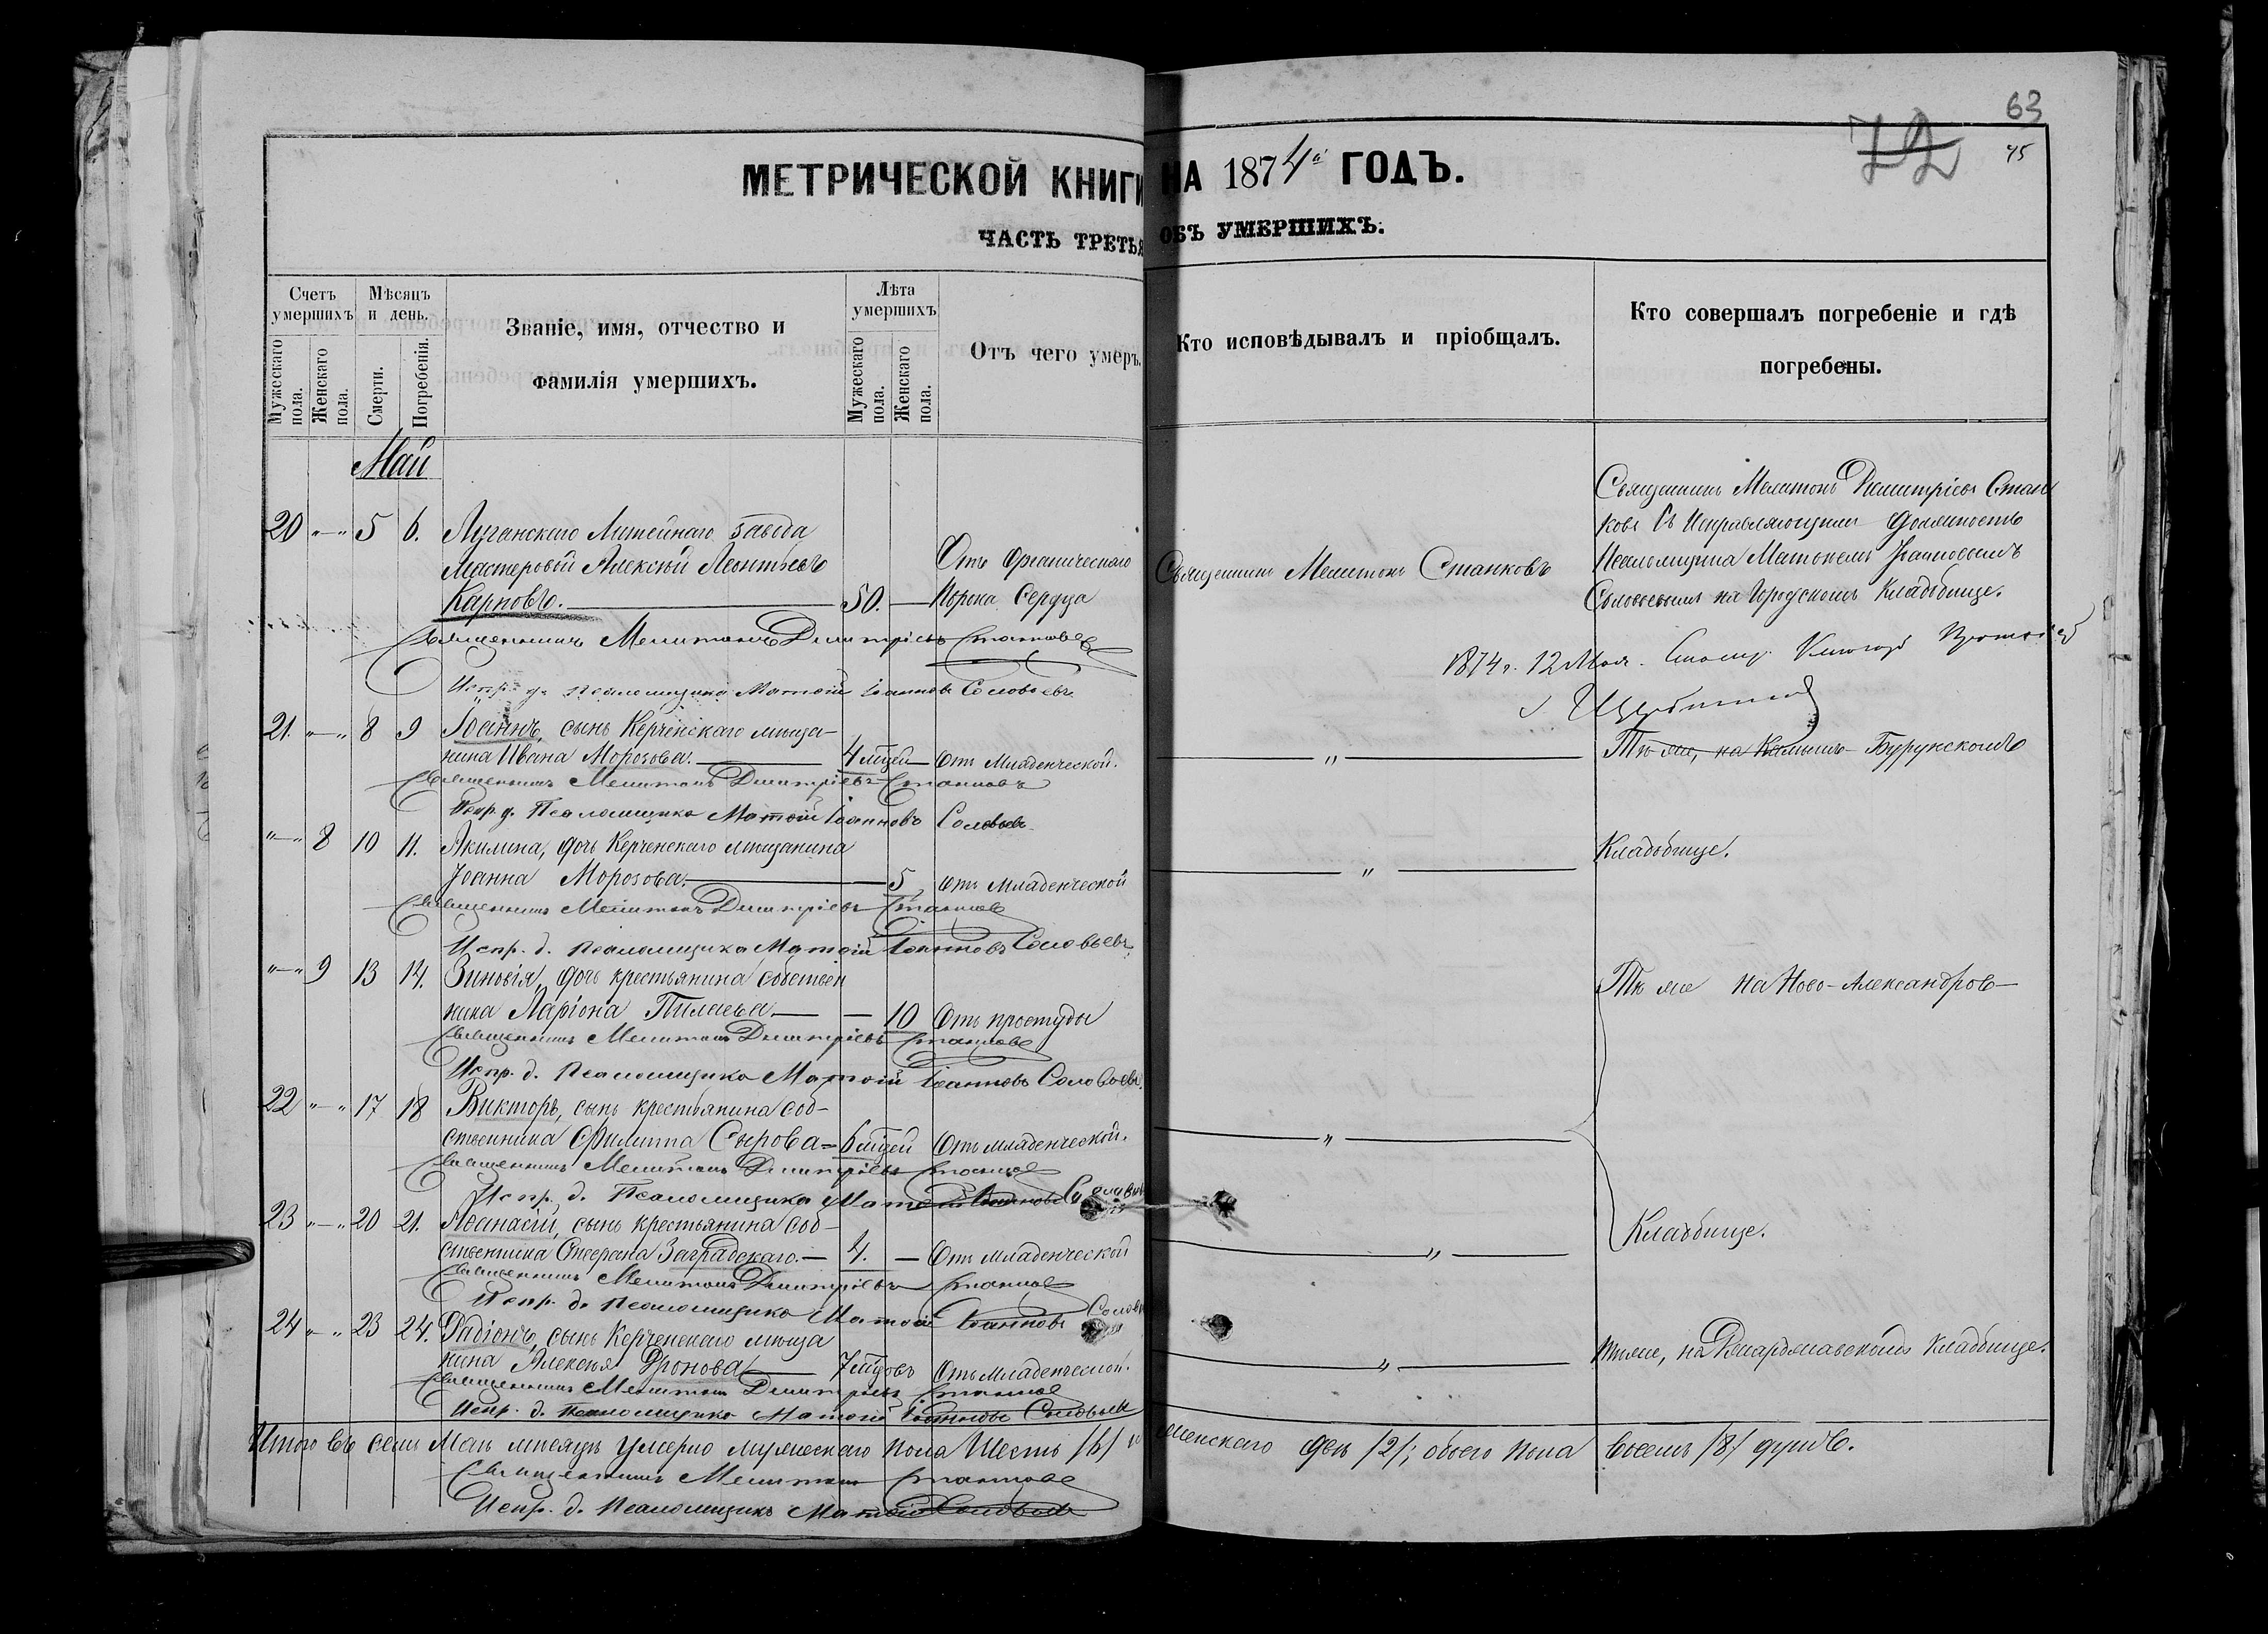 63
72
75
МЕТРИЧЕСКОЙ КНИГИ НА 1874й ГОДЪ.
ЧАСТЬ ТРЕТЬЯ ОБЪ УМЕРШИХЪ.
Счетъ умершихъ
Мужескаго пола.
Женскаго пола.
Мѣсяцъ и день.
Смерти.
Погребенія.
Званіе, имя, отчество и
фамилія умершихъ.
Лѣта умершихъ
Мужескаго пола.
Женскаго пола.
Отъ чего умеръ.
Кто исповѣдывалъ и пріобщалъ.
Кто совершалъ погребеніе и гдѣ
погребены.
Май
20 " — " 5 6. Луганскаго Литейнаго завода
Мастеровой Алексѣй Леонтьевъ
Карповъ. — 50. — Отъ Органическаго
Порока Сердца
Священникъ Мелитонъ Станковъ
Священникъ Мелитонъ Димитріевъ Стан
ковъ съ Исправляющимъ должность
Псаломщика Матѳеемъ Іоанновымъ
Соловьевымъ на Городскомъ Кладбище.
Священникъ Мелитонъ Димитріевъ Станковъ
Испр. д. Псаломщика Матѳій Іоанновъ Соловьевъ
1874 г. 12 Мая.
21. " — " 8 9 Іоаннъ, сынъ Керченскаго мѣща-
нина Ивана Морозова. — 4 мѣсцей — Отъ Младенческой.
— " — Тѣ же, на Камышъ-Бурунскомъ
Священникъ Мелитонъ Димитріевъ Станковъ
Испр. д. Псаломщика Матѳій Іоанновъ Соловьевъ
" — " 8 10 11. Акилина, дочь Керченскаго мѣщанина
Іоанна Морозова. — 5 Отъ Младенческой
— " — Кладбище.
Священникъ Мелитонъ Димитріевъ Станковъ
Испр. д. Псаломщика Матѳій Іоанновъ Соловьевъ
" — " 9 13 14. Зиновія, дочь крестьянина собствен
ника Ларіона Пилаева. — — 10 Отъ простуды
Тѣ же на Ново-Александров-
Священникъ Мелитонъ Димитріевъ Станковъ
Испр. д. Псаломщика Матѳій Іоанновъ Соловьевъ.
22 " — " 17 18 Викторъ, сынъ крестьянина соб-
ственника Филиппа Сырова — 6 мѣсцей Отъ младенческой.
— " —
Священникъ Мелитонъ Димитріевъ Станковъ
Испр. д. Псаломщика Матѳій Іоанновъ Соловьевъ
23 " — " 20 21. Аѳанасій, сынъ крестьянина соб-
ственника Заградскаго. — 4. — Отъ младенческой
— " — Кладбище.
Священникъ Мелитонъ Димитріевъ Станковъ
Испр. д. Псаломщика Матѳій Іоанновъ Соловь
24 " — " 23 24. Радіонъ, сынъ Керченскаго мѣща
нина Алексѣя Дронова — Отъ Младенческой.
— " — Тѣ же, на Кладбище.
Священникъ Мелитонъ Димитріевъ Станковъ
Испр. д. Псаломщика Матѳій Іоанновъ Соловьевъ
Итого въ семъ Маѣ мѣсяцѣ умерло мужескаго пола шесть /6/ и женскаго двѣ /2/; обоего пола восемь /8/ душъ.
Священникъ Мелитонъ Станковъ
Испр. д. Псаломщикъ Матѳій Соловьевъ